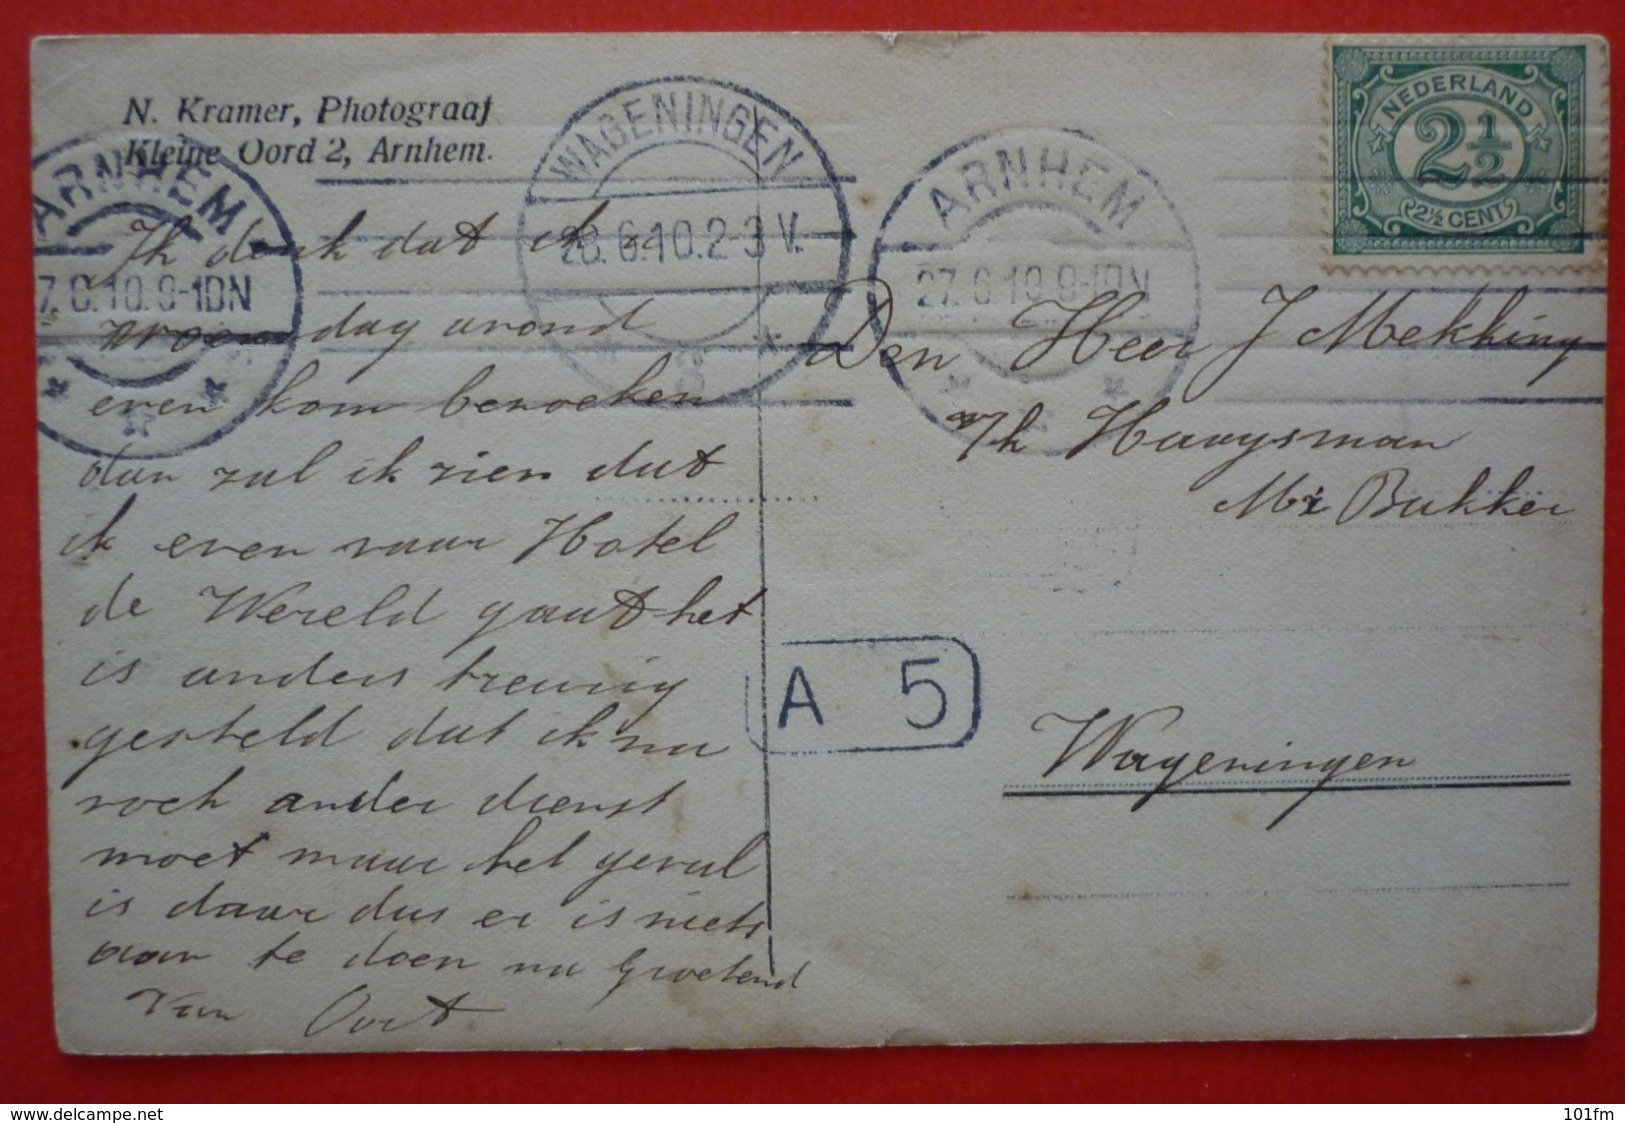 N. Kramer, Photograaf
Kleine Oord 2, Arnhem.
ARNHEM
7.6.10.9-10N
WAGENINGEN
28.6.10.2-3 V.
ARNHEM
27.6.10.9-10N
NEDERLAND
2½
2½ CENT
Ik denk dat ik
woensdag avond
even kom bezoeken
dan zal ik zien dat
ik even naar Hotel
de Wereld gaat het
is anders treurig
gesteld dat ik nu
noch ander dienst
moet maar het geval
is daar dus er is niets
aan te doen nu Groetend
Van Oort
Den Heer J Mekking
p/h Haaysman
Mr Bakker
Wageningen
A 5
www.delcampe.net
101fm